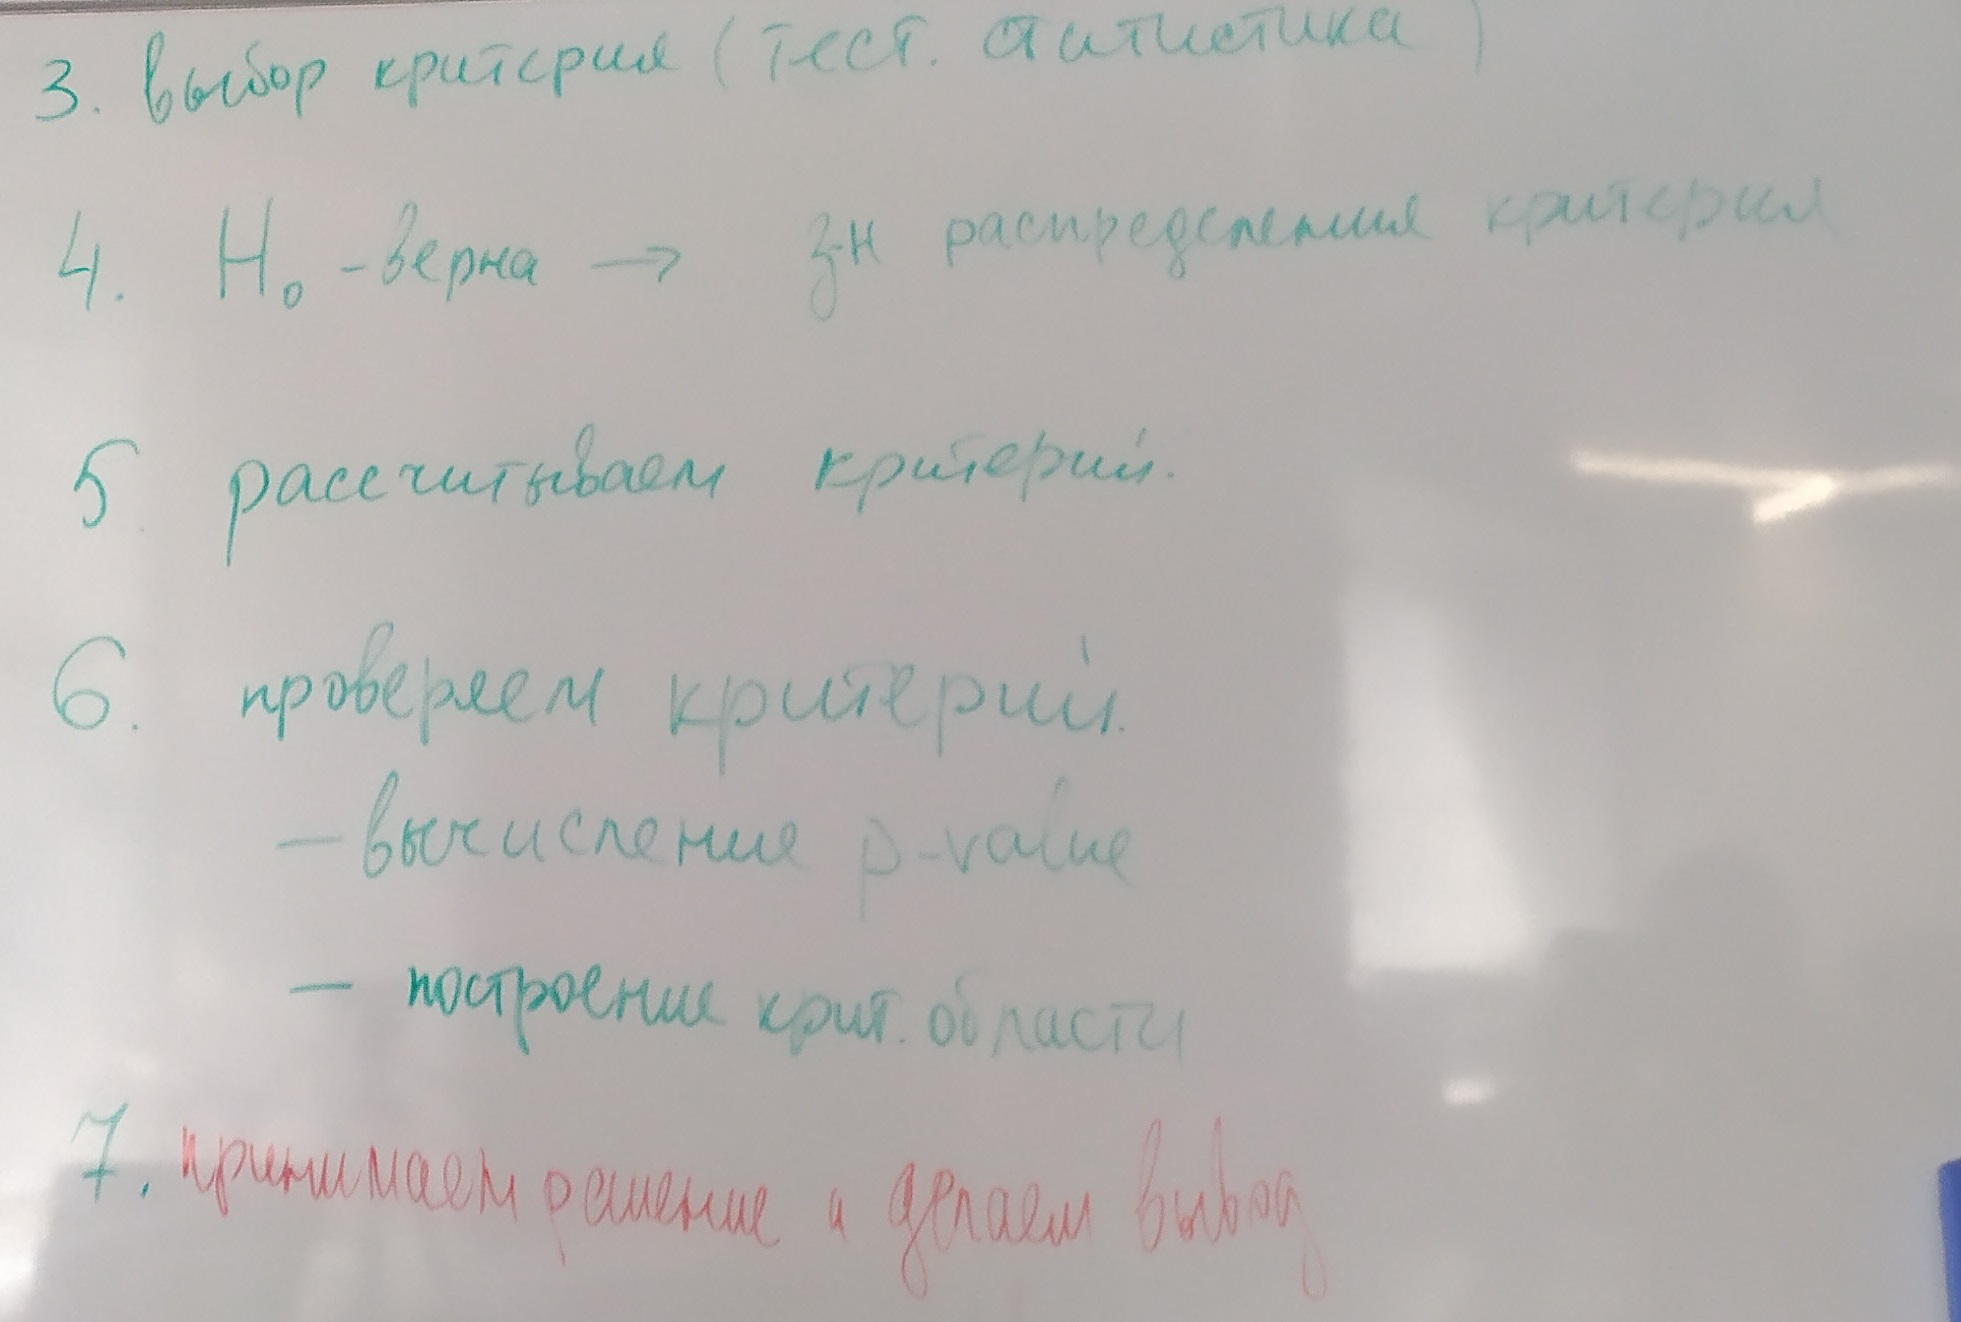 3. Выбор критерия (тест. статистика)
4. H₀ - верна → з-н распределения критерия
5. рассчитываем критерий.
6. проверяем критерий.
— вычисление p-value
— построение крит. области
7. принимаем решение и делаем вывод